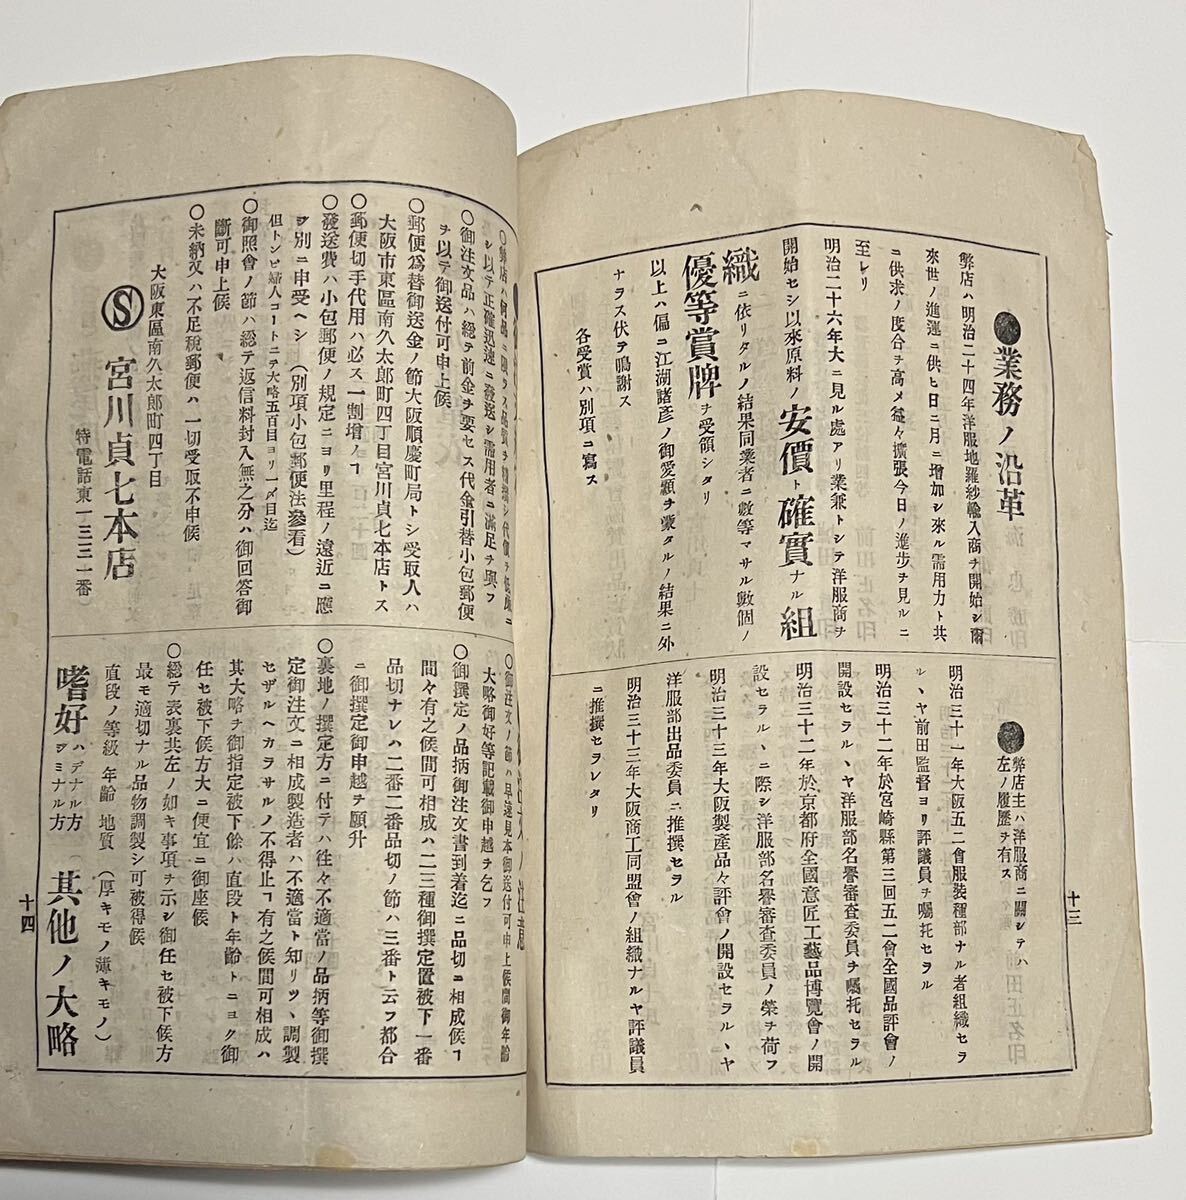 ●業務ノ沿革
弊店ハ明治二十四年洋服地羅紗輸入商ヲ開始シ爾
來世ノ進運ニ供ヒ日ニ月ニ增加シ來ル需用力ト共
ニ供求ノ度合ヲ高メ益々擴張今日ノ進步ヲ見ルニ
至レリ
明治二十六年大ニ見ル處アリ業兼トシテ洋服商ヲ
開始セシ以來原料ノ安價ト確實ナル組
織ニ依リタルノ結果同業者ニ數等マサル數個ノ
優等賞牌ヲ受領シタリ
以上ハ偏ニ江湖諸彥ノ御愛顧ヲ蒙タルノ結果ニ外
ナラス伏テ鳴謝ス
各受賞ハ別項ニ寫ス
●弊店主ハ洋服商ニ關シテハ
左ノ履歷ヲ有ス
明治三十一年大阪五二會服裝種部ナル者組織セラ
ルヽヤ前田監督ヨリ評議員ヲ囑托セラル
明治三十二年於宮崎縣第三回五二會全國品評會ノ
開設セラルヽヤ洋服部名譽審査委員ヲ囑托セラル
明治三十二年於京都府全國意匠工藝品博覽會ノ開
設セラルヽニ際シ洋服部名譽審査委員ノ榮ヲ荷フ
明治三十三年大阪製產品々評會ノ開設セラルヽヤ
洋服部出品委員ニ推撰セラル
明治三十三年大阪商工同盟會ノ組織ナルヤ評議員
ニ推撰セラレタリ
十三
シ以テ正確迅速ニ發送シ需用者ニ滿足ヲ與フ
○御注文品ハ總テ前金ヲ要セス代金引替小包郵便
ヲ以テ御送付可申上候
○郵便爲替御送金ノ節大阪順慶町局トシ受取人ハ
大阪市東區南久太郎町四丁目宮川貞七本店トス
○郵便切手代用ハ必ス一割增ノヿ
○發送費ハ小包郵便ノ規定ニヨリ里程ノ遠近ニ應
ヲ別ニ申受ヘシ(別項小包郵便法參看)
但トンビ婦人コートニテ大略五百目ヨリ一〆目迄
○御照會ノ節ハ總テ返信料封入無之分ハ御回答御
斷可申上候
○未納又ハ不足稅郵便ハ一切受取不申候
大阪東區南久太郎町四丁目
Ⓢ宮川貞七本店
特電話東一三三一番
○御注文ノ節ハ早速見本御送付可申上候間御年齡
大略御好等記載御申越ヲ乞フ
○御撰定ノ品柄御注文書到着迄ニ品切ニ相成候ヿ
間々有之候間可相成ハ二三種御撰定置被下一番
品切ナレハ二番二番品切ノ節ハ三番ト云フ都合
ニ御撰定御申越ヲ願升
○裏地ノ撰定方ニ付テハ往々不適當ノ品柄等御撰
定御注文ニ相成製造者ハ不適當ト知リツヽ調製
セザルヘカラサルノ不得止ヿ有之候間可相成ハ
其大略ヲ御指定被下餘ハ直段ト年齡トニヨク御
任セ被下候方大ニ便宜ニ御座候
○總テ表裏共左ノ如キ事項ヲ示シ御任セ被下候方
最モ適切ナル品物調製シ可被得候
直段ノ等級 年齡 地質 (厚キモノ薄キモノ)
嗜好 ハデナル方 ジミナル方 其他ノ大略
十四